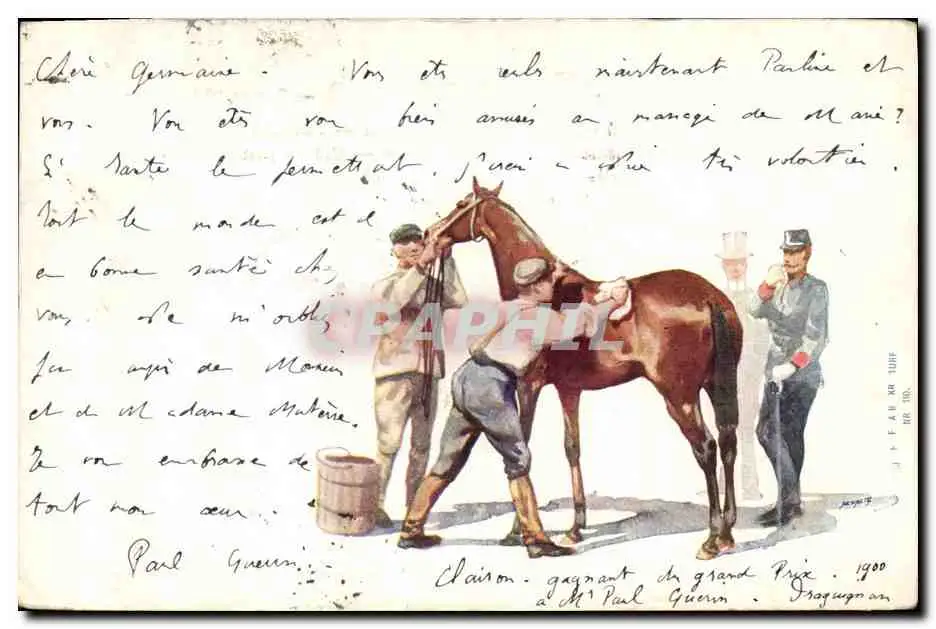 Chère Germaine. Vous êtes seules maintenant Pauline et
vous. Vous êtes vous bien amusés au mariage de Marie?
Si santé le permettait, j'irai très volontiers.
Tout le monde est il
en bonne santé chez
vous. Ne m'oubliez
pas auprès de Monsieur
et de Madame
Je vous embrasse de
tout mon cœur.
Paul Guerin.
Clairon. gagnant du grand Prix. 1900
a Mr Paul Guerin. Draguignan
CPAPHIL
TURF
NR 110.